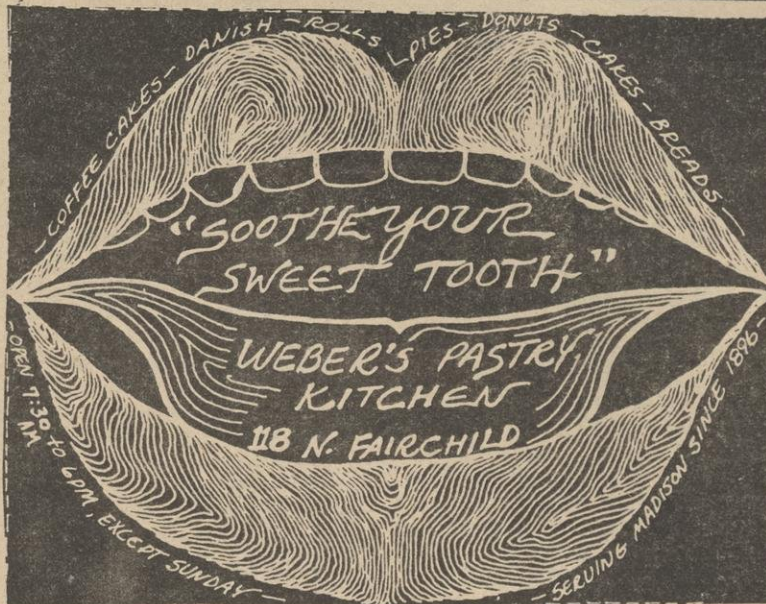 -COFFEE CAKES-DANISH-ROLLS-PIES-DONUTS-CAKES-BREADS-
"SOOTHE YOUR
SWEET TOOTH"
WEBER'S PASTRY
KITCHEN
118 N. FAIRCHILD
-OPEN 7:30 AM to 6PM, EXCEPT SUNDAY-
-SERVING MADISON SINCE 1896-